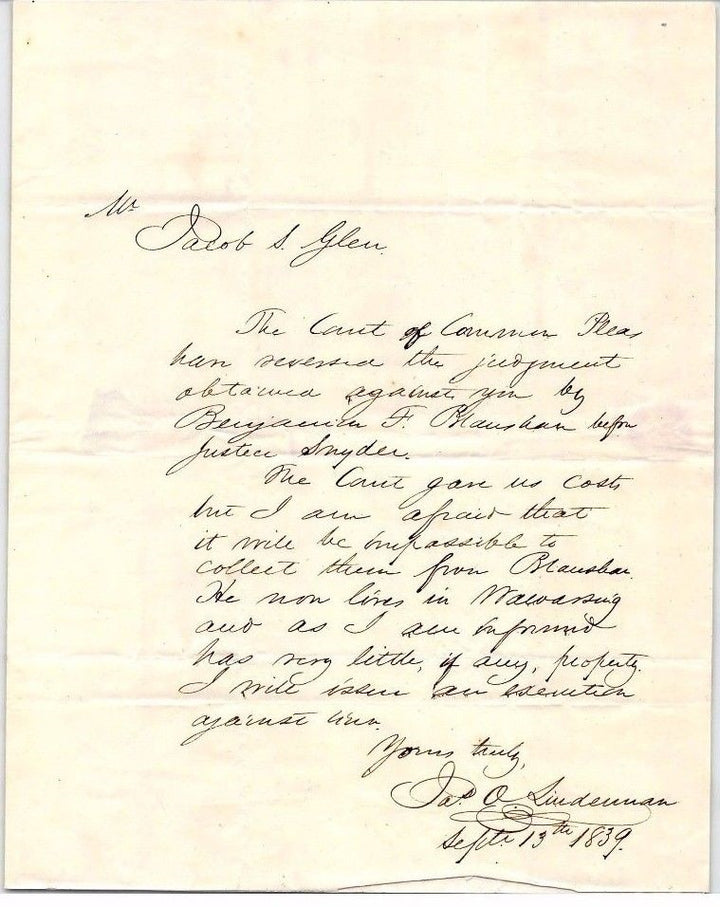 Mr
Jacob S. Glen.
The Court of Common Pleas
have reversed the judgment
obtained against you by
Benjamin F. Blanshan before
Justice Snyder.
The Court gave us costs
but I am afraid that
it will be impossible to
collect them from Blanshan.
He now lives in Wawarsing
and as I am informed
has very little, if any, property.
I will issue an execution
against him.
Yours truly,
Jas. O. Linderman
Sept. 13th 1839.